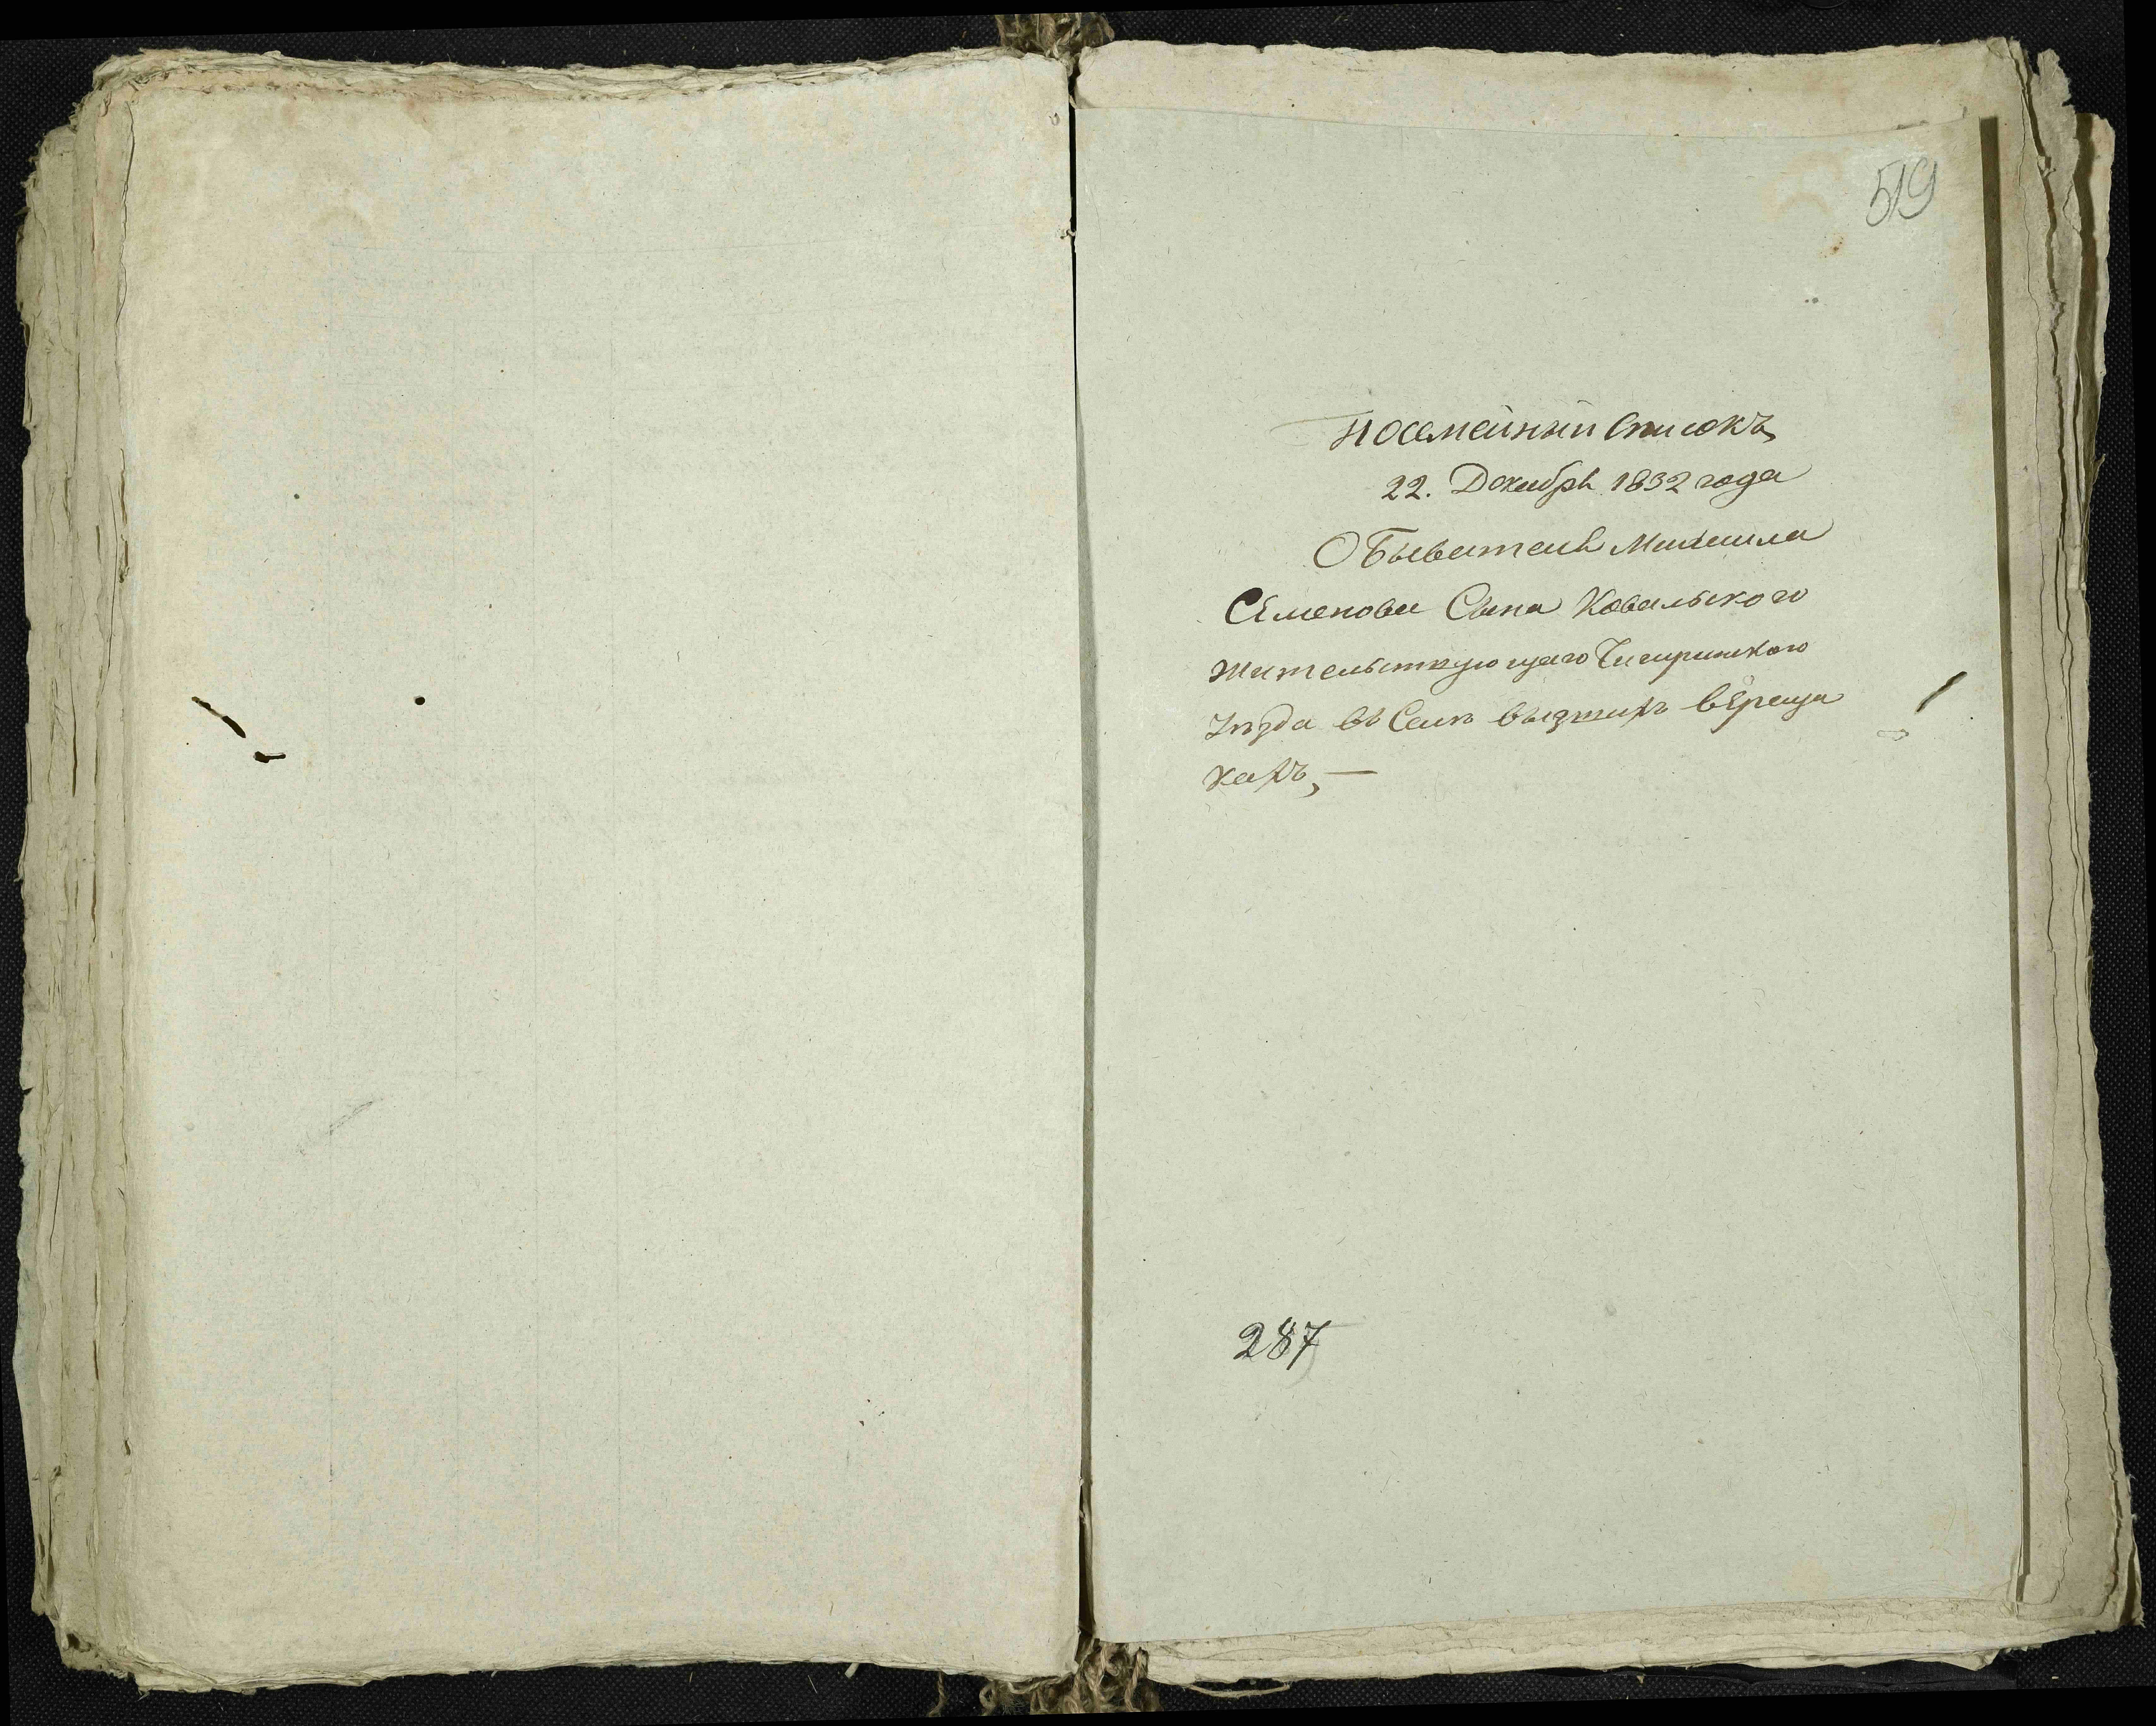 519
Посемейный Списокъ
22. Декабрь 1832 года
Обыватель Михаила
Семенова Сына Ковальского
жительствующего Чигиринского
уѣзда въ Селѣ верща
кахъ, —
287